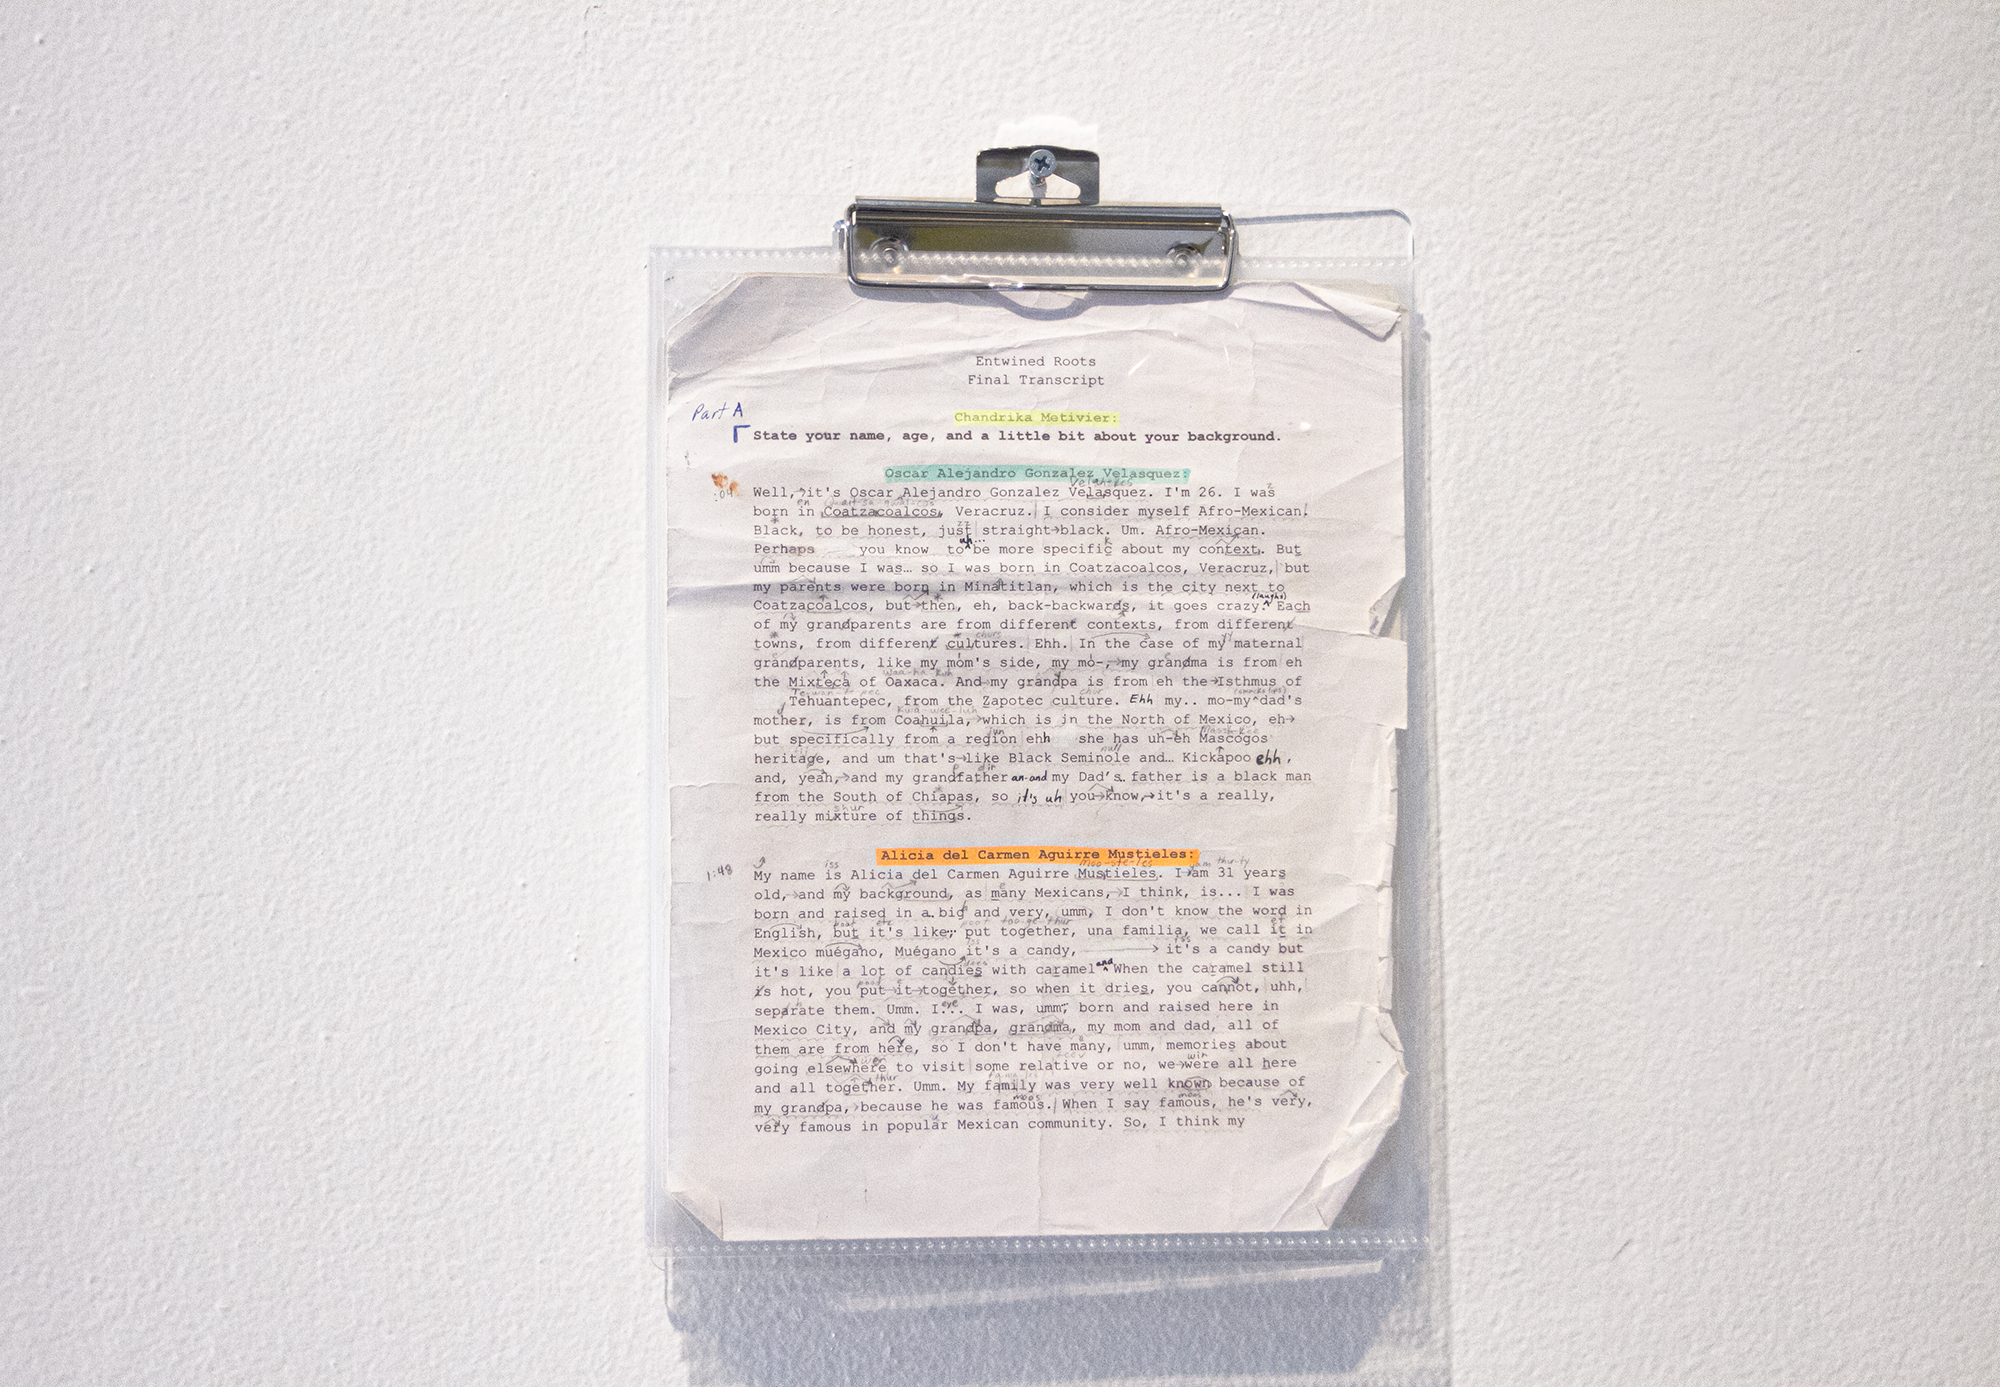 Entwined Roots
Final Transcript
Part A
Chandrika Metivier:
State your name, age, and a little bit about your background.
Oscar Alejandro Gonzalez Velasquez:
:04 Well, it's Oscar Alejandro Gonzalez Velasquez. I'm 26. I was
born in Coatzacoalcos, Veracruz. I consider myself Afro-Mexican.
Black, to be honest, just straight black. Um. Afro-Mexican.
Perhaps you know to uh... be more specific about my context. But
umm because I was… so I was born in Coatzacoalcos, Veracruz, but
my parents were born in Minatitlan, which is the city next to
Coatzacoalcos, but then, eh, back-backwards, it goes crazy. (laughs) Each
of my grandparents are from different contexts, from different
towns, from different cultures. Ehh. In the case of my maternal
grandparents, like my mom's side, my mo-, my grandma is from eh
the Mixteca of Oaxaca. And my grandpa is from eh the Isthmus of
Tehuantepec, from the Zapotec culture. Ehh my.. mo-my dad's
mother, is from Coahuila, which is in the North of Mexico, eh
but specifically from a region ehh she has uh-eh Mascogos
heritage, and um that's like Black Seminole and… Kickapoo ehh,
and, yeah, and my grandfather an-and my Dad's father is a black man
from the South of Chiapas, so it's uh you know, it's a really,
really mixture of things.
Alicia del Carmen Aguirre Mustieles:
1:48 My name is Alicia del Carmen Aguirre Mustieles. I am 31 years
old, and my background, as many Mexicans, I think, is... I was
born and raised in a big and very, umm, I don't know the word in
English, but it's like, put together, una familia, we call it in
Mexico muégano, Muégano it's a candy, it's a candy but
it's like a lot of candies with caramel and When the caramel still
is hot, you put it together, so when it dries, you cannot, uhh,
separate them. Umm. I... I was, umm, born and raised here in
Mexico City, and my grandpa, grandma, my mom and dad, all of
them are from here, so I don't have many, umm, memories about
going elsewhere to visit some relative or no, we were all here
and all together. Umm. My family was very well known because of
my grandpa, because he was famous. When I say famous, he's very,
very famous in popular Mexican community. So, I think my